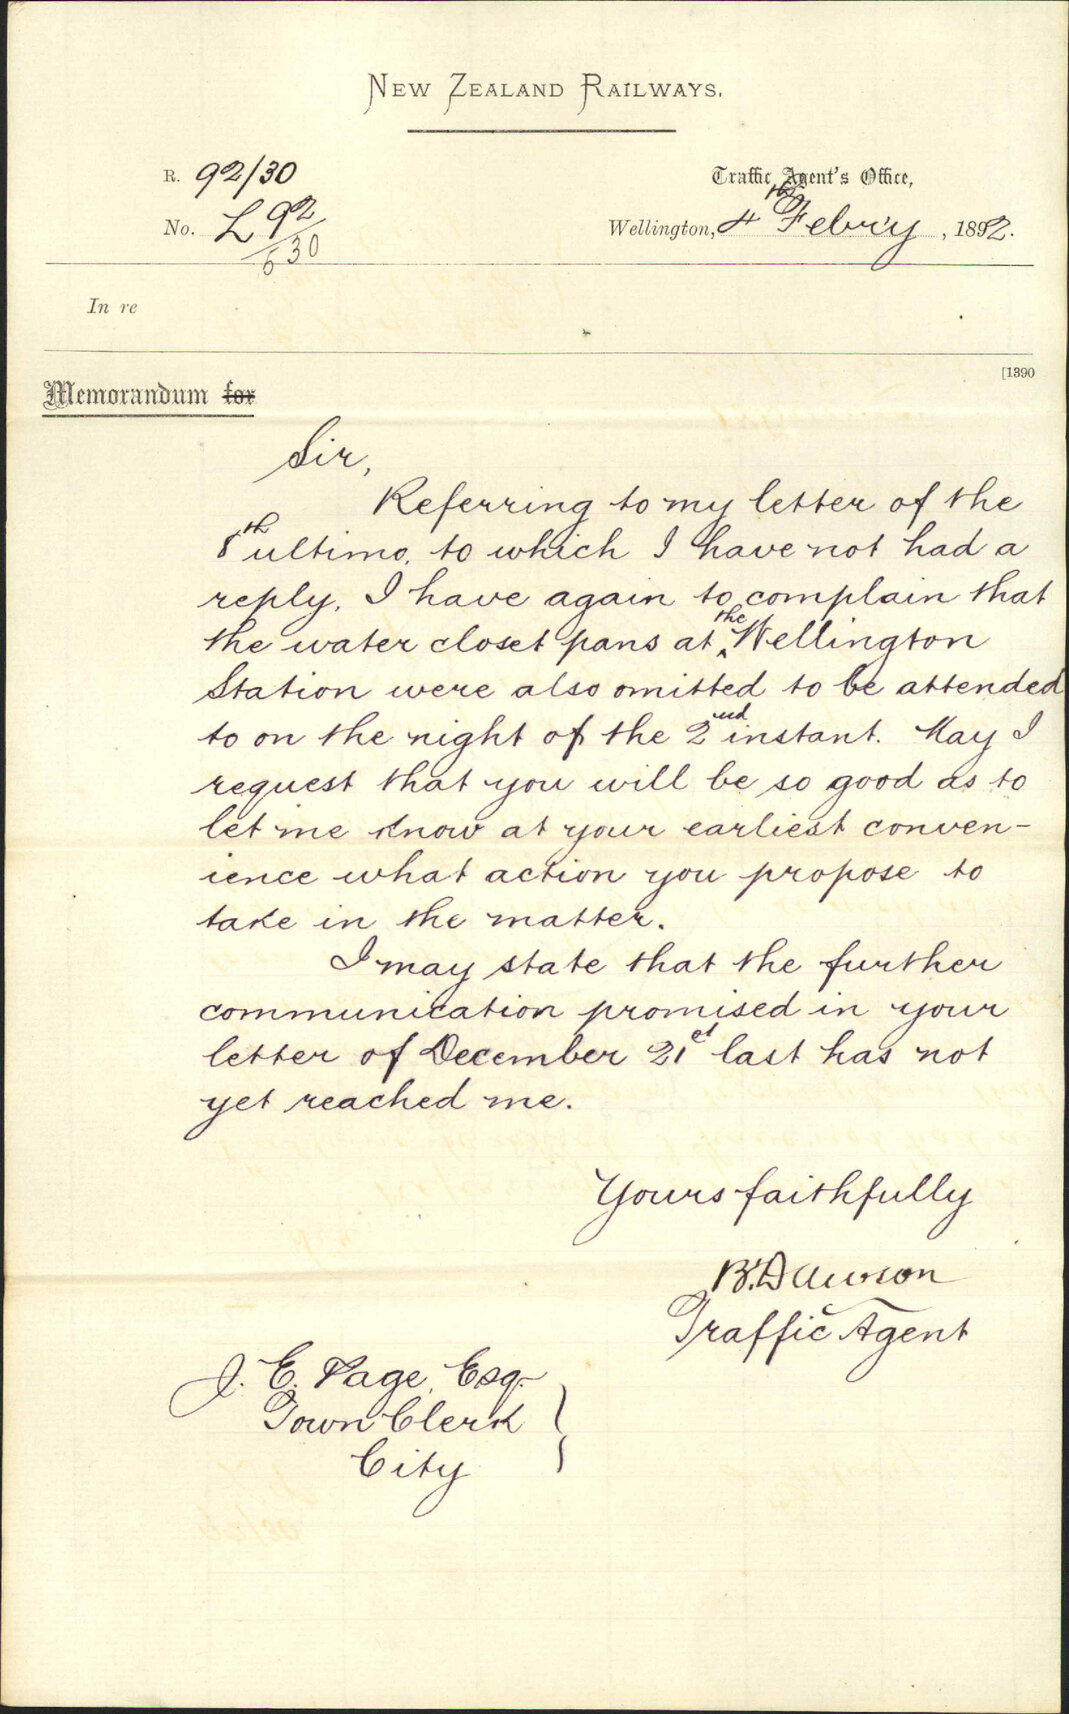 NEW ZEALAND RAILWAYS.
R. 92/30
Traffic Agent's Office,
No. L 92/630
Wellington, 4th Febr'y, 1892.
In re
[1390
Memorandum for
Sir,
Referring to my letter of the
8th ultimo, to which I have not had a
reply, I have again to complain that
the water closet pans at the Wellington
Station were also omitted to be attended
to on the night of the 2nd instant. May I
request that you will be so good as to
let me know at your earliest conven-
ience what action you propose to
take in the matter.
I may state that the further
communication promised in your
letter of December 21st last has not
yet reached me.
Yours faithfully
B. Dawson
Traffic Agent
J. E. Page, Esq.
Town Clerk
City